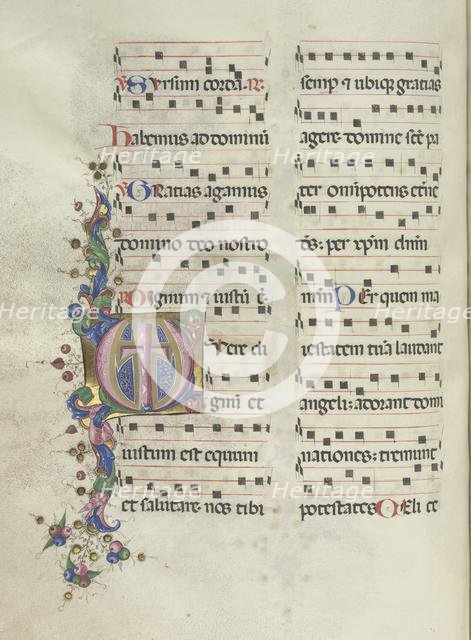 V Sursum corda. R.
Habemus ad dominū
V Gratias agamus
domino deo nostro
R Dignum & iustū ē.
Vere di
gnū et
iustum est equum
et salutare. nos tibi
semp & ubiqȝ gratias
agere. domine scē pa
ter omīpotens etne
ds: per xp̄m dnm
nrm̄ Per quem ma
iestatem tuā laudant
angeli: adorant domi
nationes: tremunt
potestates Celi ce
Heritage
Heritage
Heritage
Heritage
Heritage
Heritage
Heritage
Heritage
Heritage